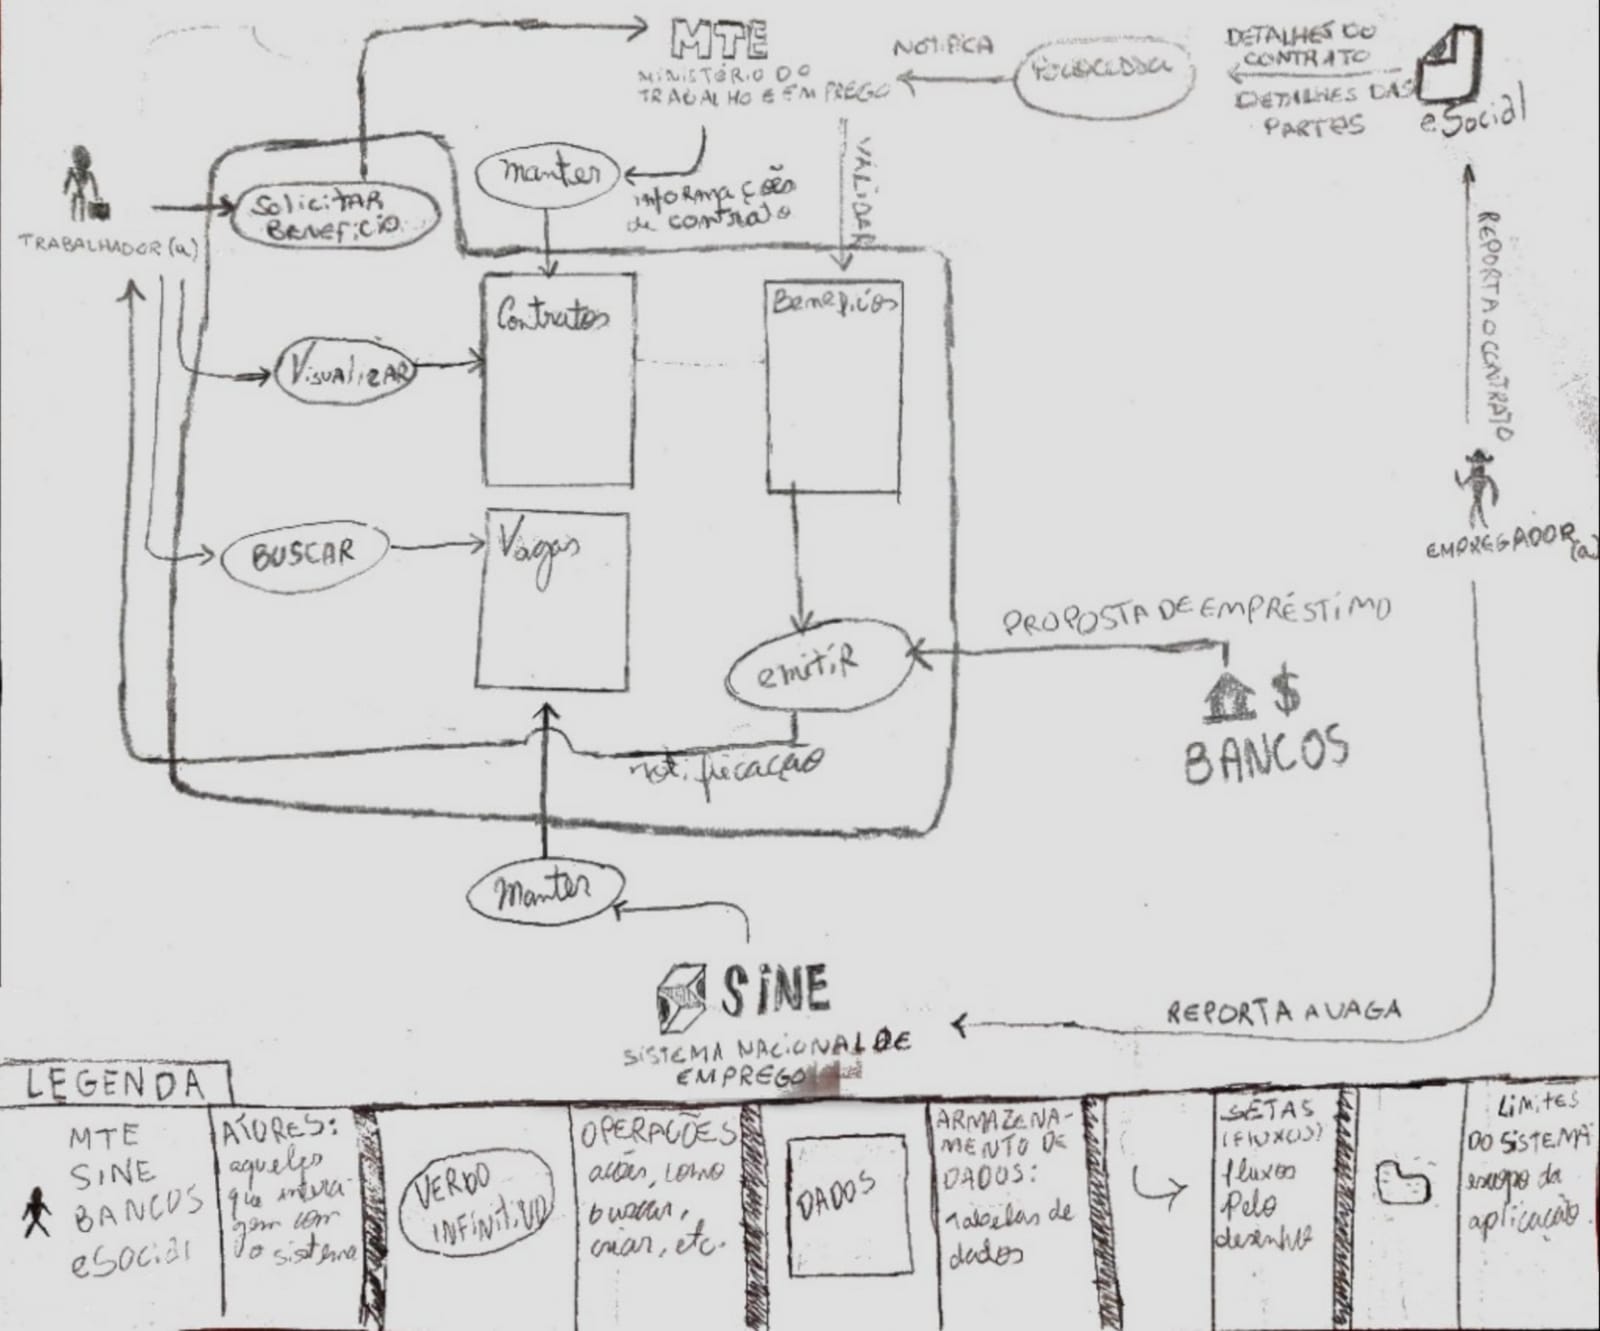 MTE
MINISTÉRIO DO
TRABALHO E EMPREGO
NOTIFICA
DETALHES DO
CONTRATO
DETALHES DAS
PARTES
eSocial
TRABALHADOR(a)
SOLICITAR
BENEFICIO
manter
informações
de contrato
VALIDAR
REPORTA O CONTRATO
Contratos
Beneficios
VISUALIZAR
BUSCAR
Vagas
emitir
PROPOSTA DE EMPRÉSTIMO
EMPREGADOR(a)
$
BANCOS
notificação
Manter
SINE
SISTEMA NACIONAL DE
EMPREGO
REPORTA A VAGA
LEGENDA
MTE
SINE
BANCOS
eSocial
ATORES:
aqueles
que intera-
gem com
o sistema
VERBO
INFINITIVO
OPERAÇÕES
ações, como
buscar,
criar, etc.
DADOS
ARMAZENA-
MENTO DE
DADOS:
Tabelas de
dados
SETAS
(FLUXOS)
fluxos
Pelo
desenho
LIMITES
DO SISTEMA
escopo da
aplicação.